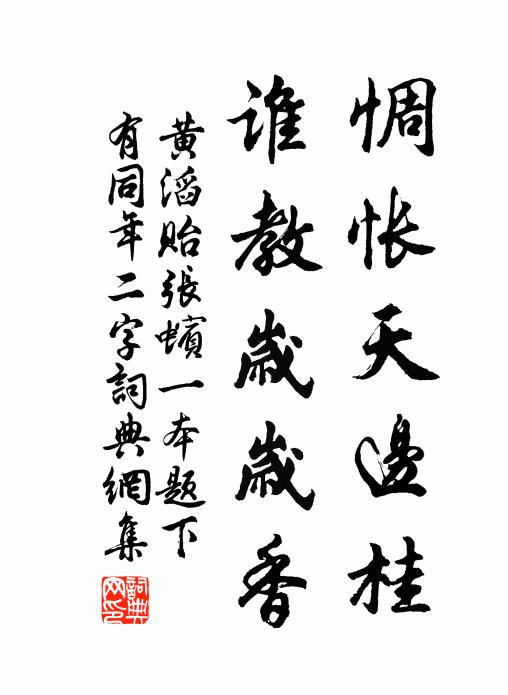 惆怅天邊桂
谁教歲歲香
黄滔貽張蠙一本题下
有同年二字詞典網集
詞典網印